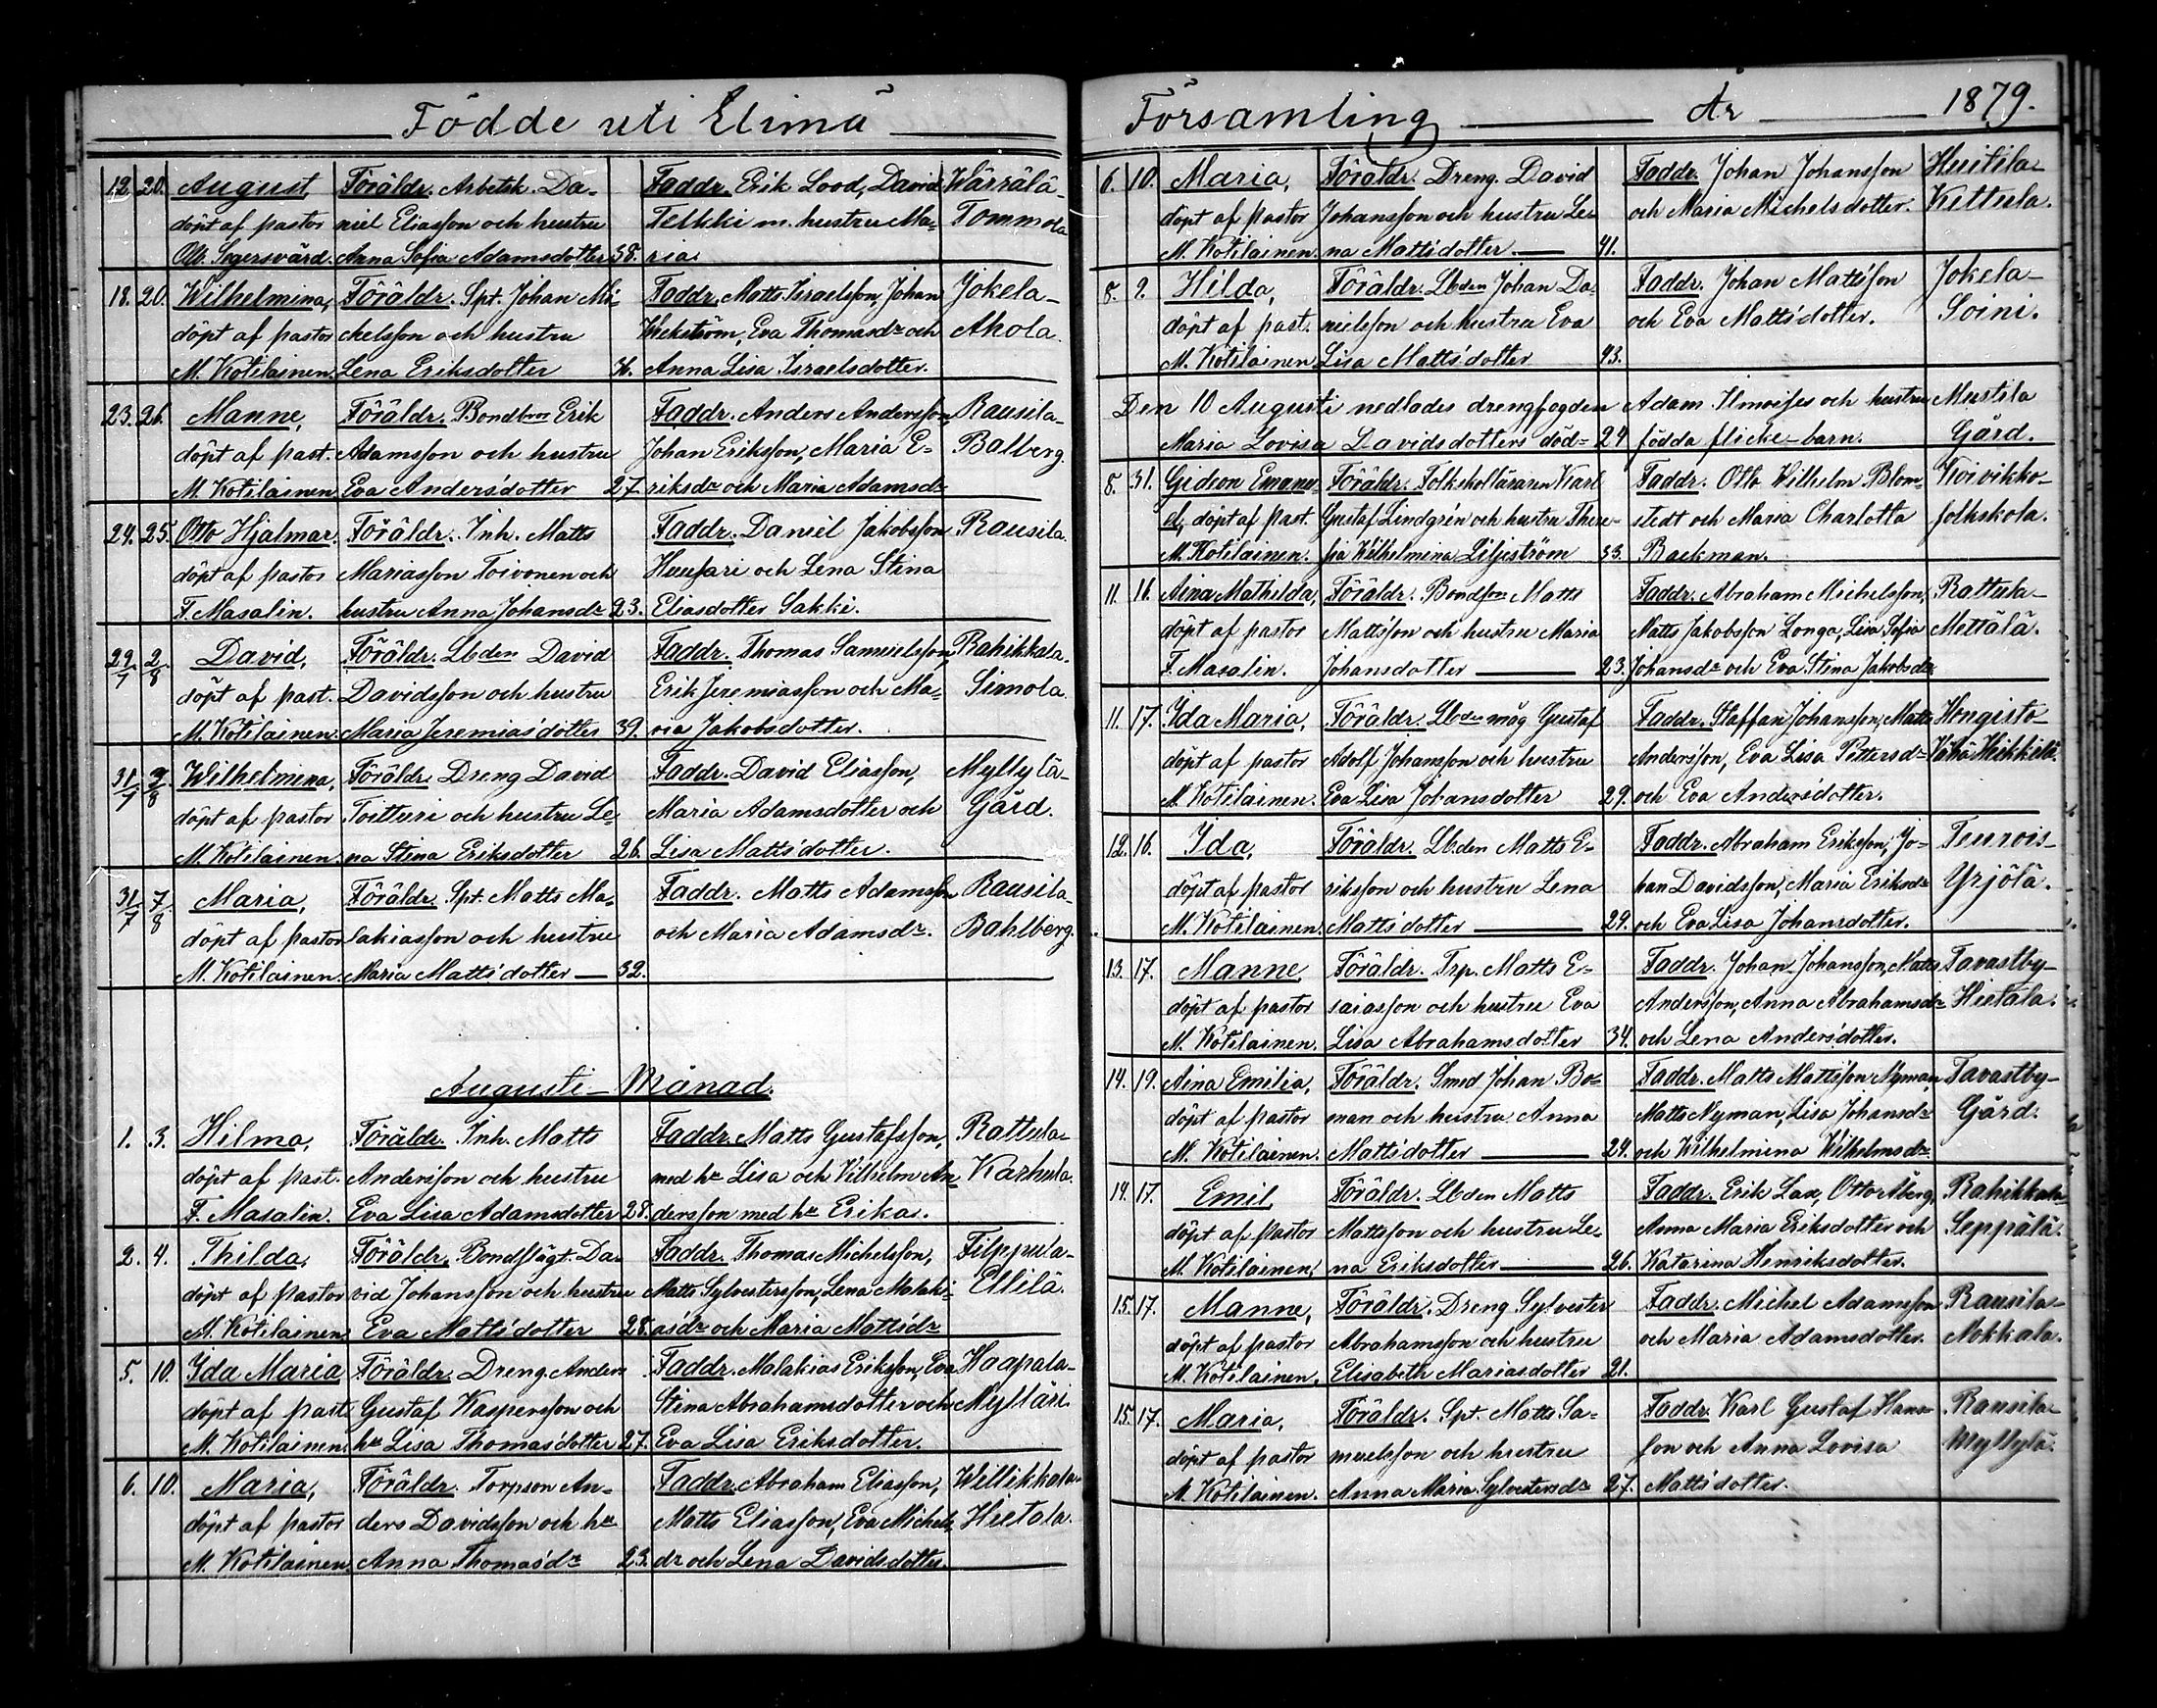 Födde uti Elimä
12. 20. August, Föräldr. Arbetsk. Da- Faddr. Erik Lood, David Wärrälä-
döpt af pastor niel Eliasson och hustru Telkki m. hustru Ma- Tommola
Otto Segersvärd. Anna Sofia Adamsdotter 38. ria.
18. 20. Wilhelmina, Föräldr. Spt. Johan Mi- Faddr. Matts Israelsson, Johan Jokela-
döpt af pastor chelsson och hustru Wekström, Eva Thomasdr och Ahola.
M. Kotilainen. Lena Eriksdotter Anna Lisa Israelsdotter.
23. 26. Manne, Föräldr. Bondbror Erik Faddr. Anders Andersson, Rausila-
döpt af past. Adamsson och hustru Johan Eriksson, Maria E- Balberg.
M. Kotilainen Eva Andersdotter 27. riksdr och Maria Adamsdr
24. 25. Otto Hjalmar. Föräldr. Inh. Matts Faddr. Daniel Jakobsson Rausila.
döpt af pastor Mariasson Toivonen och Huusari och Lena Stina
F. Masalin. hustru Anna Johansdr 23. Eliasdotter Sakki.
29/7 2/8 David, Föräldr. Lbden David Faddr. Thomas Samuelsson, Rahikkala-
döpt af past. Davidsson och hustru Erik Jeremiasson och Ma- Simola.
M. Kotilainen. Maria Jeremiasdotter 39. ria Jakobsdotter.
31/7 9/8 Wilhelmina, Föräldr. Dreng David Faddr. David Eliasson, Myllylä-
döpt af pastor Toitturi och hustru Le- Maria Adamsdotter och Gård.
M. Kotilainen. na Stina Eriksdotter 26. Lisa Mattsdotter.
31/7 7/8 Maria, Föräldr. Spt. Matts Ma- Faddr. Matts Adamsson Rausila-
döpt af pastor lakiasson och hustru och Maria Adamsdr. Bahlberg.
M. Kotilainen. Maria Mattsdotter — 32.
Augusti - Månad.
1. 3. Hilma, Föräldr. Inh. Matts Faddr. Matts Gustafsson, Rattula-
döpt af past. Andersson och hustru med hu Lisa och Vilhelm An- Karhula.
F. Masalin. Eva Lisa Adamsdotter 28. dersson med hu Erika.
2. 4. Thilda, Föräldr. Bondsligt. Da- Faddr. Thomas Michelsson, Filppula-
döpt af pastor vid Johansson och hustru Matts Sylvestersson, Lena Malaki- Ellilä.
M. Kotilainen Eva Mattsdotter 28. asdr och Maria Mattsdr
5. 10. Ida Maria Föräldr. Dreng. Anders Faddr. Malakias Eriksson, Eva Haapala-
döpt af past. Gustaf Kaspersson och Stina Abrahamsdotter och Mylläri.
M. Kotilainen. hu Lisa Thomasdotter 27. Eva Lisa Eriksdotter.
6. 10. Maria, Föräldr. Torpson An- Faddr. Abraham Eliasson, Willikkala-
döpt af pastor ders Davidsson och hu Matts Eliasson, Eva Michels- Hietala.
M. Kotilainen. Anna Thomasdr 23. dr och Lena Davidsdotter.
Församling År 1879.
6. 10. Maria, Föräldr. Dreng. David Faddr. Johan Johansson Huitila-
döpt af pastor Johansson och hustru Le- och Maria Michelsdotter. Kettula.
M. Kotilainen. na Mattsdotter — 41.
8. 9. Hilda, Föräldr. Lbden Johan Da- Faddr. Johan Mattsson Jokela-
döpt af past. nielsson och hustru Eva och Eva Mattsdotter. Soini.
M. Kotilainen Lisa Mattsdotter 43.
Den 10 Augusti nedlades drengfogden Adam Ilmoises och hustru Mustila
Maria Lovisa Davidsdotters död- 29 födda flicke-barn. Gård.
8. 31. Gideon Emanu- Föräldr. Folkskolläraren Karl Faddr. Otto Wilhelm Blom- Koivikko-
el, döpt af past. Gustaf Lindgrén och hustru There- stedt och Maria Charlotta folkskola.
M. Kotilainen. sia Wilhelmina Liljeström 33. Backman.
11. 16. Aina Mathilda, Föräldr. Bondson Matts Faddr. Abraham Michelsson, Rattula-
döpt af pastor Mattsson och hustru Maria Matts Jakobsson Longa, Lisa Sofia Mettälä.
F. Masalin. Johansdotter — 23. Johansdr och Eva Stina Jakobsdr
11. 17. Ida Maria, Föräldr. Lbden måg Gustaf Faddr. Staffan Johansson, Matts Hongisto-
döpt af pastor Adolf Johansson och hustru Andersson, Eva Lisa Pettersdr Vähä Heikkilä.
M. Kotilainen. Eva Lisa Johansdotter 29. och Eva Andersdotter.
12. 16. Ida, Föräldr. Lbden Matts E- Faddr. Abraham Eriksson, Jo- Teurois-
döpt af pastor riksson och hustru Lena han Davidsson, Maria Eriksdr Yrjölä.
M. Kotilainen. Mattsdotter — 29. och Eva Lisa Johansdotter.
13. 17. Manne, Föräldr. Trp. Matts E- Faddr. Johan Johansson, Matts Tavastby-
döpt af pastor saiasson och hustru Eva Andersson, Anna Abrahamsdr Hietala.
M. Kotilainen. Lisa Abrahamsdotter 34. och Lena Andersdotter.
14. 19. Aina Emilia, Föräldr. Smed Johan Bo- Faddr. Matts Mattsson Nyman Tavastby-
döpt af pastor man och hustru Anna Matts Nyman, Lisa Johansdr Gård.
M. Kotilainen. Mattsdotter — 24. och Wilhelmina Wilhelmsdr
14. 17. Emil, Föräldr. Lbden Matts Faddr. Erik Lax, Otto Åberg, Rahikkala-
döpt af pastor Mattsson och hustru Le- Anna Maria Eriksdotter och Seppälä.
M. Kotilainen. na Eriksdotter — 26. Katarina Henriksdotter.
15. 17. Manne, Föräldr. Dreng Sylvester Faddr. Michel Adamsson Rausila-
döpt af pastor Abrahamsson och hustru och Maria Adamsdotter. Nokkala.
M. Kotilainen. Elisabeth Mariasdotter 21.
15. 17. Maria, Föräldr. Spt. Matts Sa- Faddr. Karl Gustaf Hans- Rausila-
döpt af pastor muelsson och hustru son och Anna Lovisa Myllylä.
M. Kotilainen. Anna Maria Sylvestersdr 27. Mattsdotter.